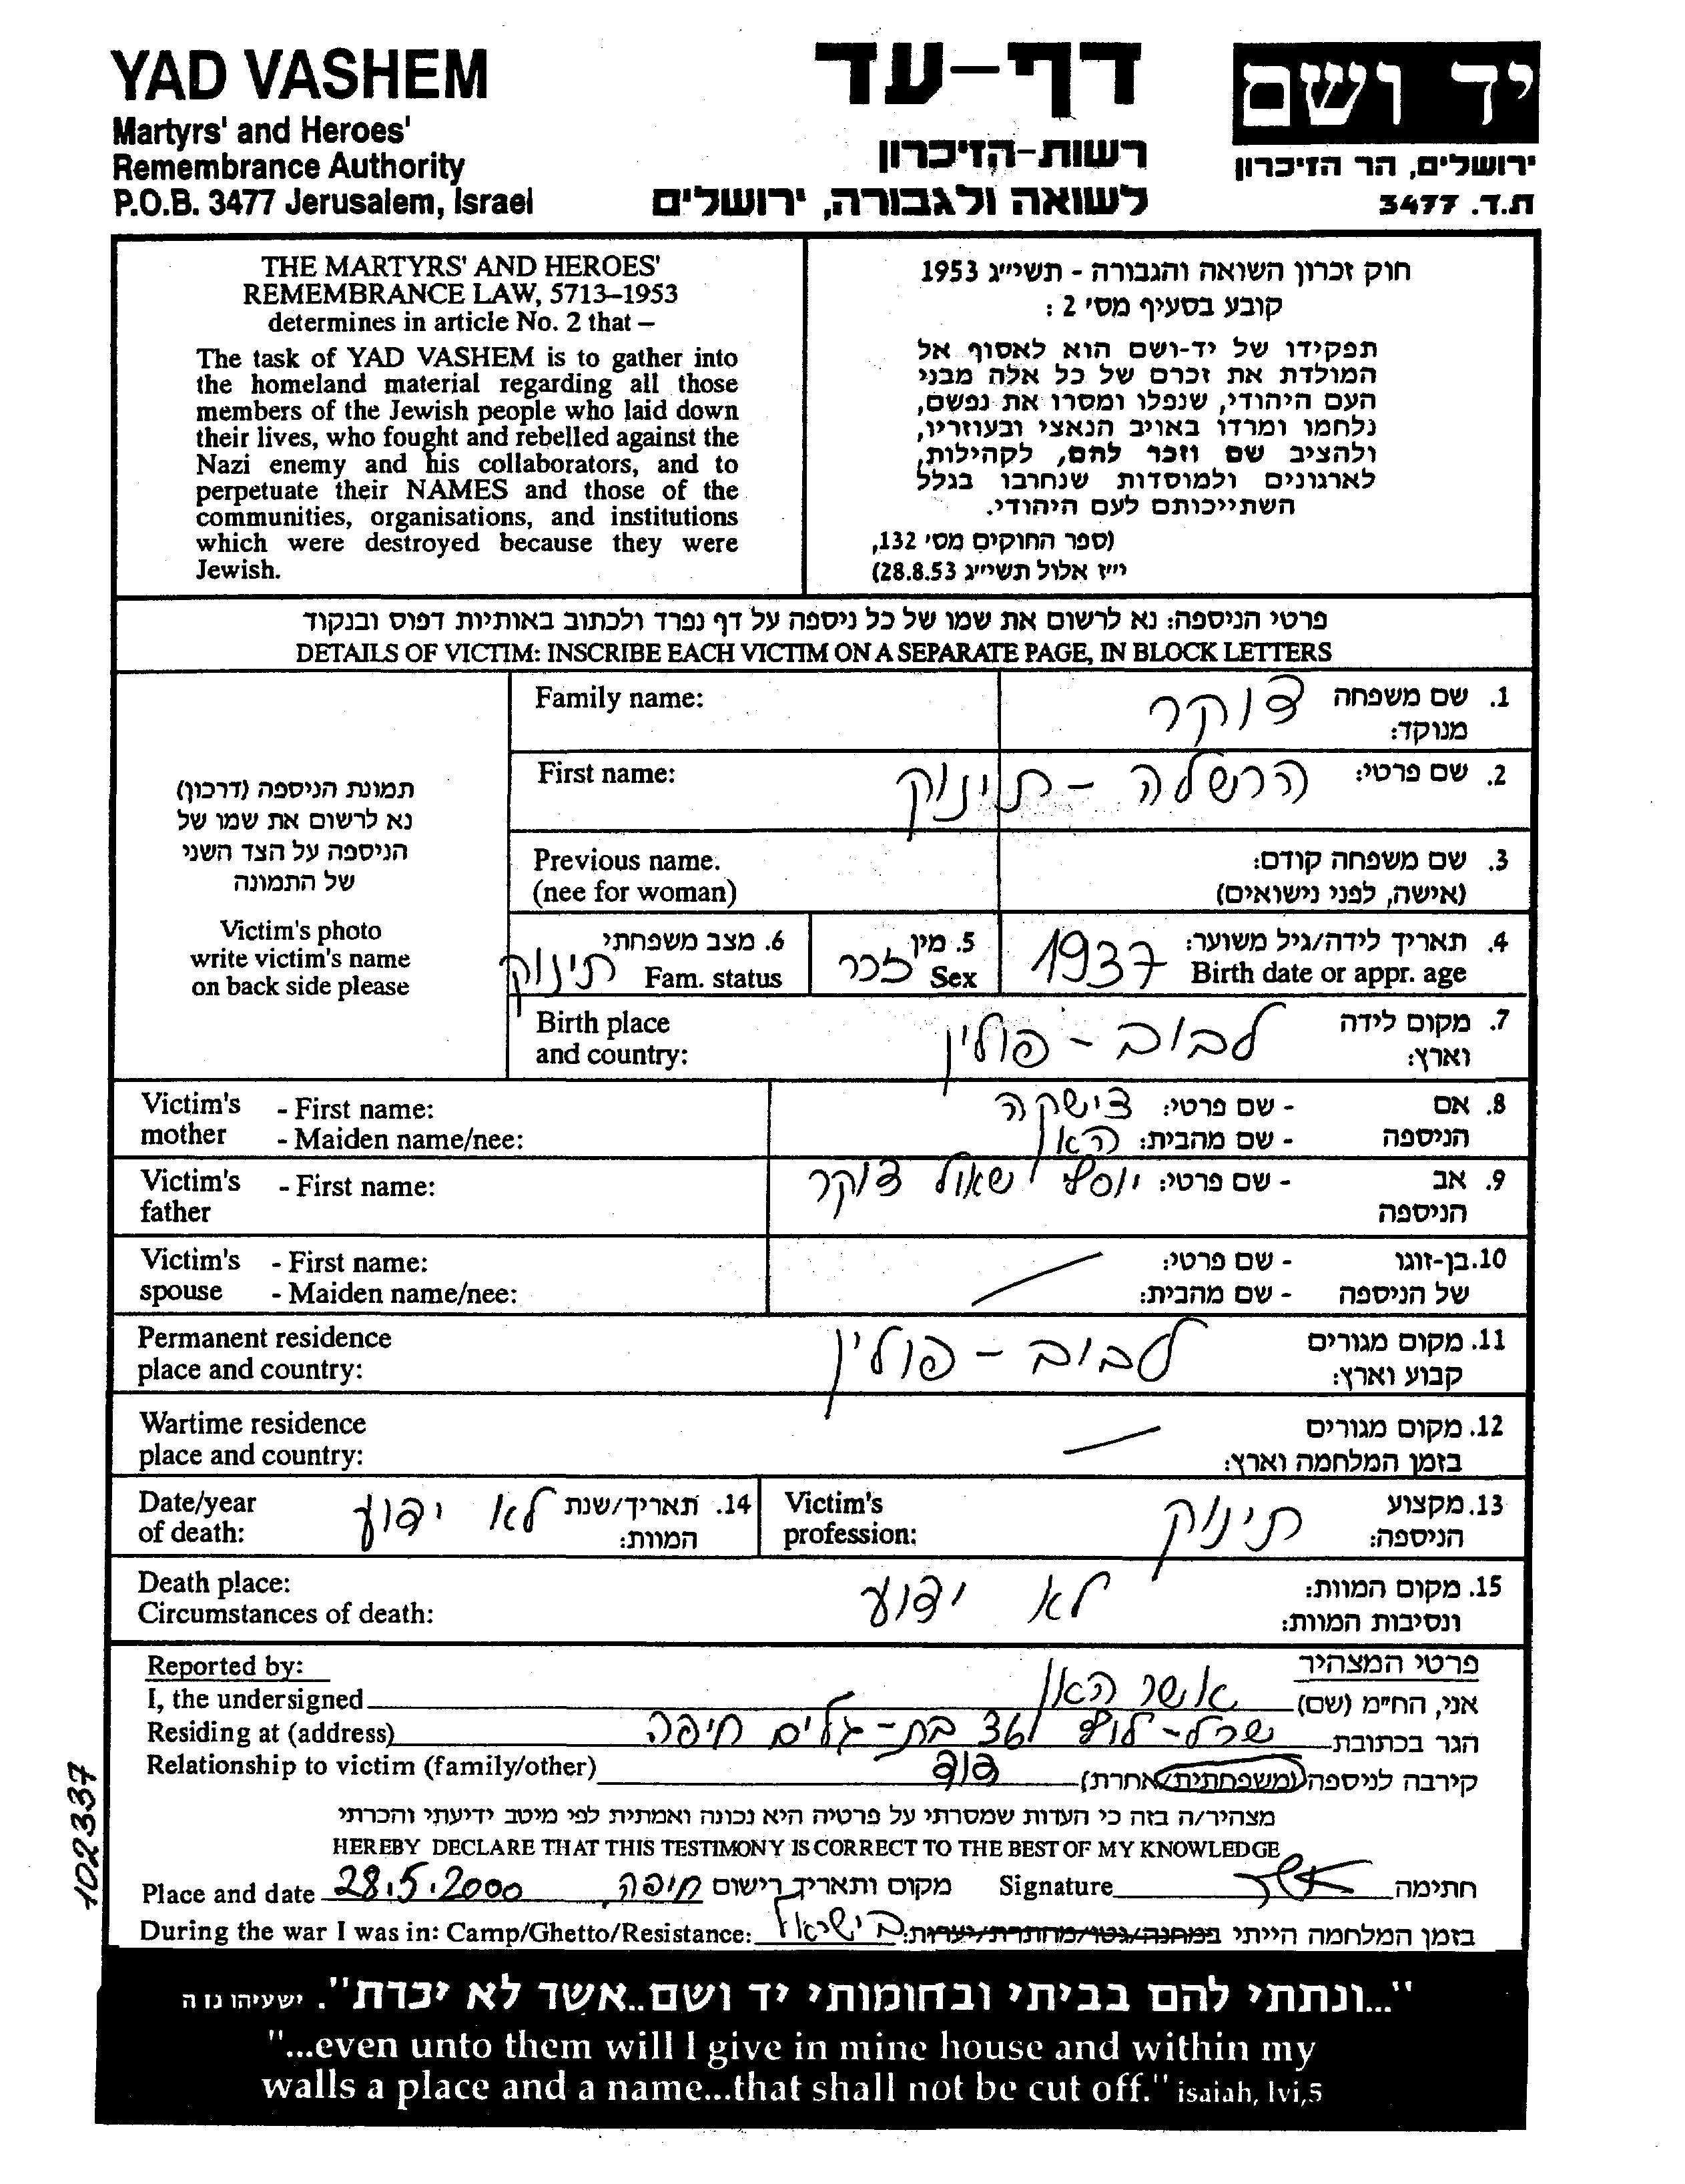 YAD VASHEM
Martyrs' and Heroes'
Remembrance Authority
P.O.B. 3477 Jerusalem, Israel
דף-עד
רשות-הזיכרון
לשואה ולגבורה, ירושלים
יד ושם
ירושלים, הר הזיכרון
ת.ד. 3477
THE MARTYRS' AND HEROES'
REMEMBRANCE LAW, 5713–1953
determines in article No. 2 that –
The task of YAD VASHEM is to gather into
the homeland material regarding all those
members of the Jewish people who laid down
their lives, who fought and rebelled against the
Nazi enemy and his collaborators, and to
perpetuate their NAMES and those of the
communities, organisations, and institutions
which were destroyed because they were
Jewish.
חוק זכרון השואה והגבורה - תשי״ג 1953
קובע בסעיף מס' 2 :
תפקידו של יד-ושם הוא לאסוף אל
המולדת את זכרם של כל אלה מבני
העם היהודי, שנפלו ומסרו את נפשם,
נלחמו ומרדו באויב הנאצי ובעוזריו,
ולהציב שם וזכר להם, לקהילות,
לארגונים ולמוסדות שנחרבו בגלל
השתייכותם לעם היהודי.
(ספר החוקים מס' 132,
י״ז אלול תשי״ג 28.8.53)
פרטי הניספה: נא לרשום את שמו של כל ניספה על דף נפרד ולכתוב באותיות דפוס ובנקוד
DETAILS OF VICTIM: INSCRIBE EACH VICTIM ON A SEPARATE PAGE, IN BLOCK LETTERS
תמונת הניספה (דרכון)
נא לרשום את שמו של
הניספה על הצד השני
של התמונה
Victim's photo
write victim's name
on back side please
Family name: צוקר 1. שם משפחה
מנוקד:
First name: הרשלה - תינוק 2. שם פרטי:
Previous name. 3. שם משפחה קודם:
(nee for woman) (אישה, לפני נישואים)
4. תאריך לידה/גיל משוער: 1937
Birth date or appr. age
5. מין זכר
Sex
6. מצב משפחתי תינוק
Fam. status
Birth place לבוב - פולין 7. מקום לידה
and country: וארץ:
Victim's - First name: 8. אם - שם פרטי: צישקה
mother - Maiden name/nee: הניספה - שם מהבית: האן
Victim's - First name: 9. אב - שם פרטי: יוסף שאול צוקר
father הניספה
Victim's - First name: 10. בן-זוגו - שם פרטי:
spouse - Maiden name/nee: של הניספה - שם מהבית:
Permanent residence לבוב - פולין 11. מקום מגורים
place and country: קבוע וארץ:
Wartime residence 12. מקום מגורים
place and country: בזמן המלחמה וארץ:
Victim's תינוק 13. מקצוע
profession: הניספה:
Date/year לא ידוע 14. תאריך/שנת
of death: המוות:
Death place: לא ידוע 15. מקום המוות:
Circumstances of death: ונסיבות המוות:
Reported by: פרטי המצהיר
I, the undersigned אשר האן אני, הח״מ (שם)
Residing at (address) 36 בת-גלים חיפה הגר בכתובת
Relationship to victim (family/other) דוד קירבה לניספה (משפחתית/אחרת)
מצהיר/ה בזה כי העדות שמסרתי על פרטיה היא נכונה ואמתית לפי מיטב ידיעתי והכרתי
HEREBY DECLARE THAT THIS TESTIMONY IS CORRECT TO THE BEST OF MY KNOWLEDGE
Place and date 28.5.2000 חיפה מקום ותאריך רישום Signature אשר חתימה
During the war I was in: Camp/Ghetto/Resistance: בישראל בזמן המלחמה הייתי במחנה/גטו/מחתרת/יערות:
102337
"...ונתתי להם בביתי ובחומותי יד ושם..אשר לא יכרת". ישעיהו נז ה
"...even unto them will I give in mine house and within my
walls a place and a name...that shall not be cut off." isaiah, lvi,5